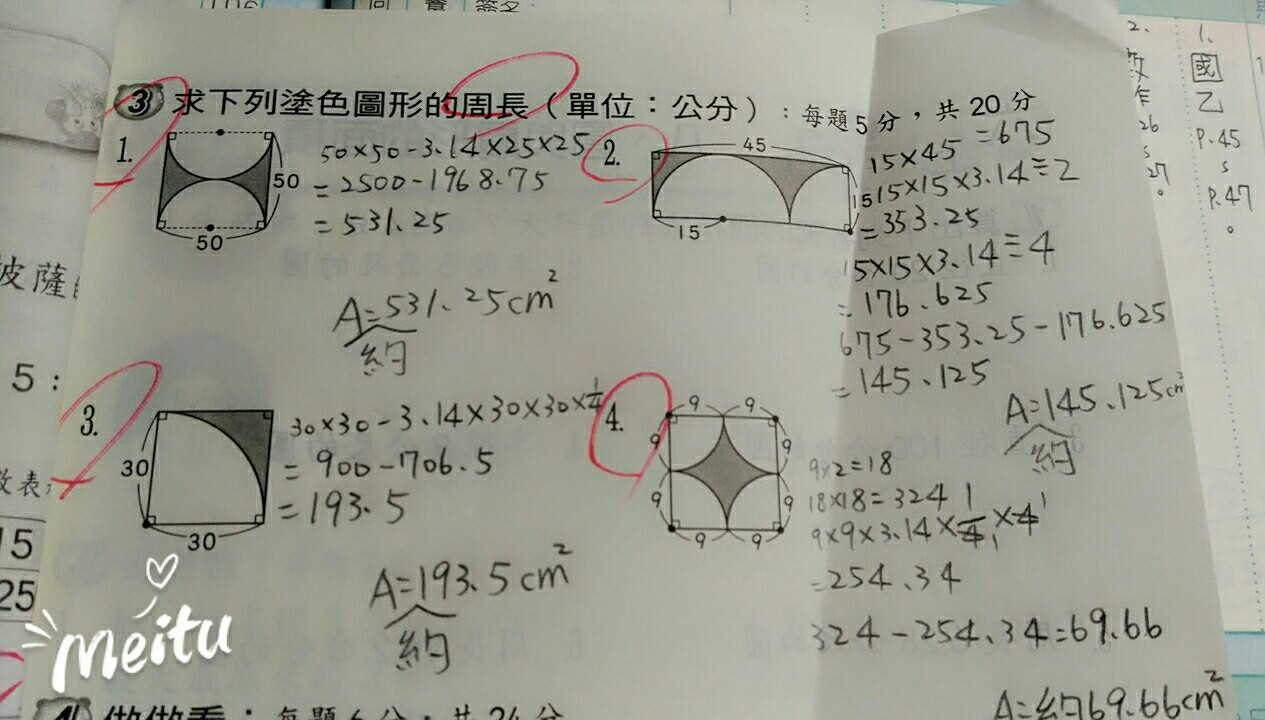 106
簽名
③ 求下列塗色圖形的周長（單位：公分）：每題5分，共20分
1.
50
50
50×50-3.14×25×25
=2500-1968.75
=531.25
A=531.25cm²
約
2.
45
15
15
15×45=675
15×15×3.14÷2
=353.25
15×15×3.14÷4
=176.625
675-353.25-176.625
=145.125
A=145.125cm²
約
3.
30
30
30×30-3.14×30×30×1/4
=900-706.5
=193.5
A=193.5cm²
約
4.
9 9
9 9
9 9
9 9
9×2=18
18×18=324
9×9×3.14×1/4×4
=254.34
324-254.34=69.66
A=約69.66cm²
做做看：每題6分，共24分
披薩
5：
數表
15
25
meitu
1.
國
乙
P.45
s
P.47
。
2.
26
s
27
。